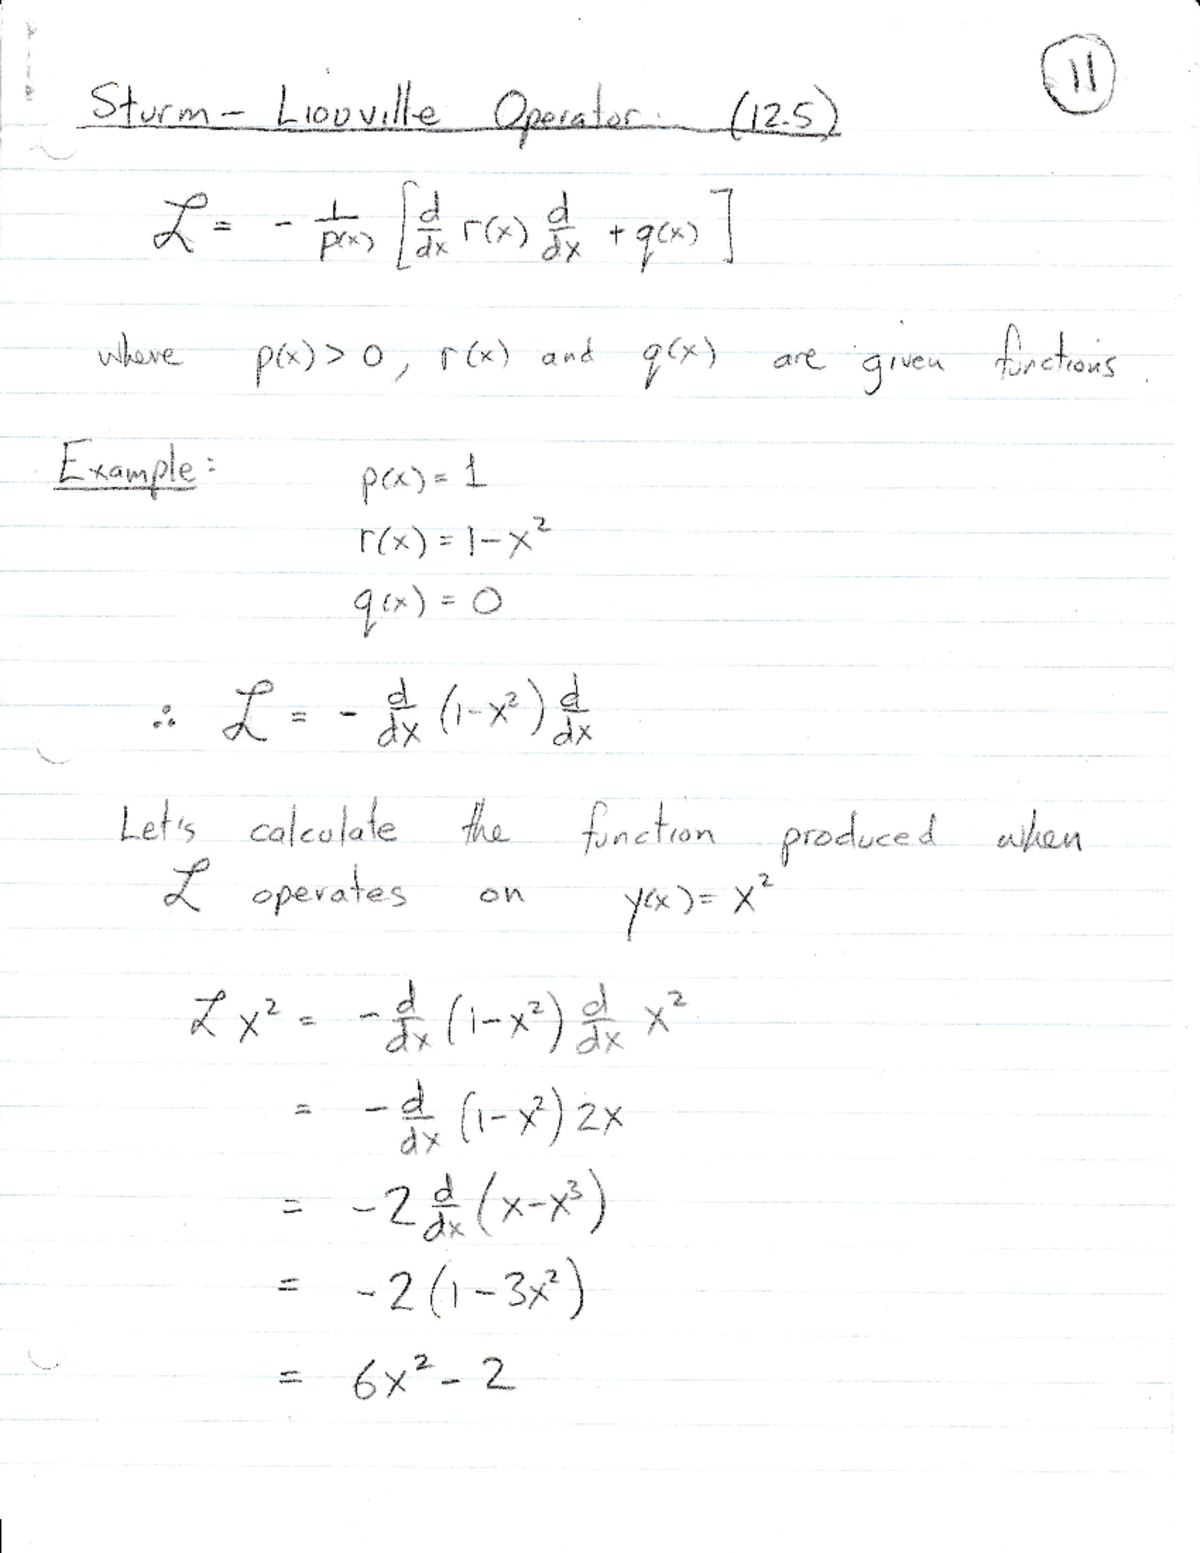 11
Sturm - Liouville Operator. (12.5)
ℒ = - 1/p(x) [d/dx r(x) d/dx + q(x)]
where p(x) > 0, r(x) and q(x) are given functions.
Example: p(x) = 1
r(x) = 1-x²
q(x) = 0
∴ ℒ = - d/dx (1-x²) d/dx
Let's calculate the function produced when
ℒ operates on y(x) = x²
ℒ x² = - d/dx (1-x²) d/dx x²
= - d/dx (1-x²) 2x
= -2 d/dx (x-x³)
= -2 (1-3x²)
= 6x² - 2